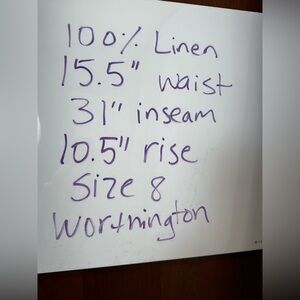 100% Linen
15.5" waist
31" inseam
10.5" rise
Size 8
Worthington